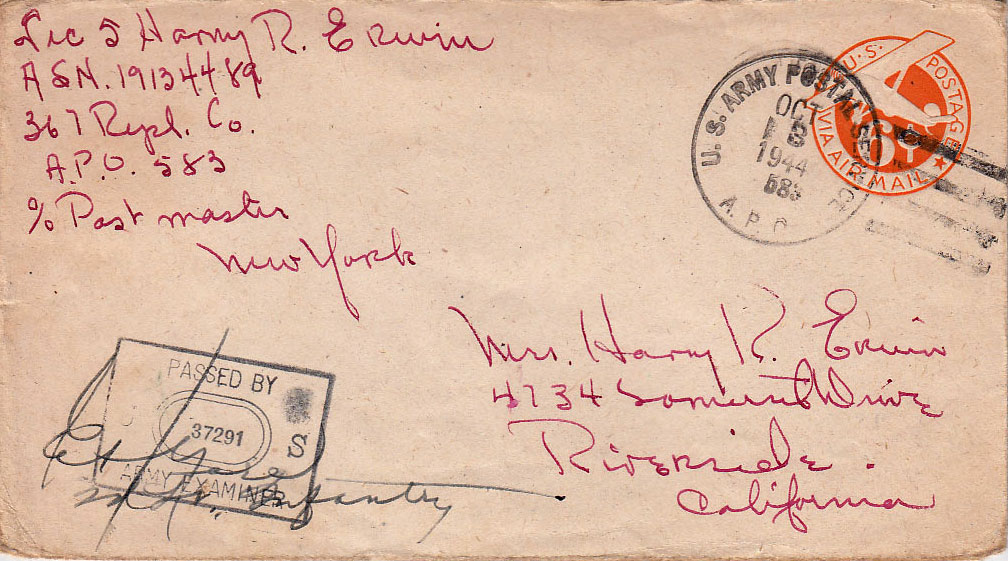 Tec 5 Harry R. Erwin
ASN. 19134489
367 Repl. Co.
A.P.O. 583
c/o Post master
New York
U.S. ARMY POSTAL
OCT
1944
583
A. P. O.
U.S. POSTAGE
6¢
VIA AIR MAIL
Mrs. Harry R. Erwin
4734 Somerset Drive
Riverside.
California
PASSED BY
37291
S
ARMY EXAMINER
Infantry